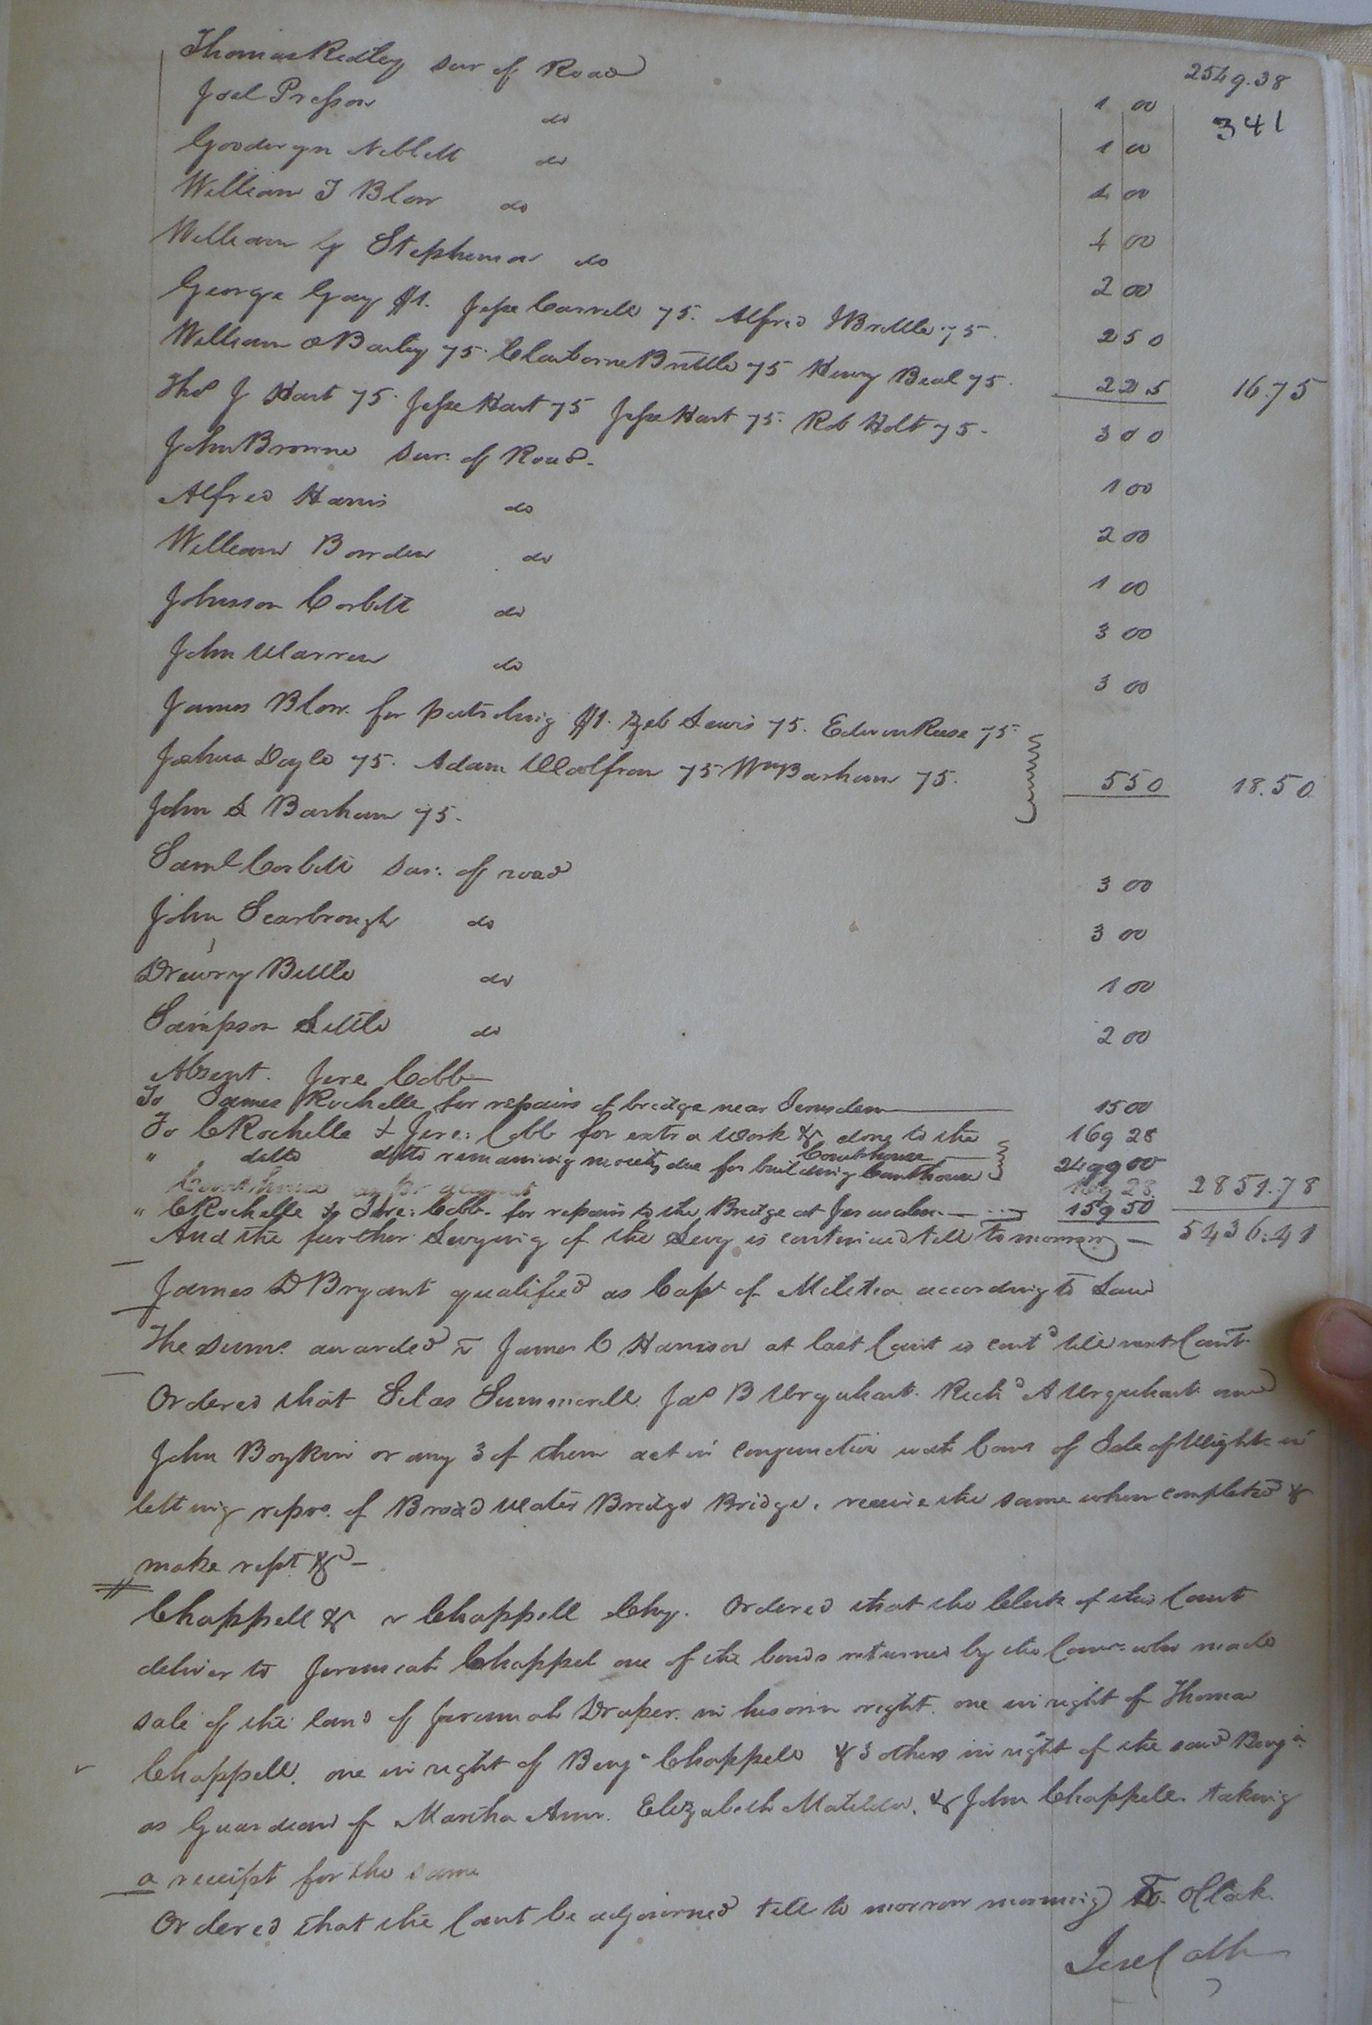 2549.38
341
Thomas Ridley Sur of Road 1 00
Joel Presson do 1 00
Gooderyn Neblett do 1 00
William J Blow do 4 00
William G Stephenson do 2 00
George Gay $1. Jesse Carrell 75. Alfred J Brittle 75. 2 50
William O Bailey 75. Claiborne Brittle 75 Henry Beal 75. 2 25 16.75
Thos J Hart 75. Jesse Hart 75 Jesse Hart 75. Rob Holt 75. 3 00
John Browne Sur. of Road. 1 00
Alfred Harris do 2 00
William Bowden do 1 00
Johnson Corbett do 3 00
John Warren do 3 00
James Blow for patroling $1. Zeb Lewis 75. Edwin Reese 75.
Joshua Doyle 75. Adam Woolfron 75 Wm Barham 75. 5 50 18.50
John S Barham 75.
Saml Corbett Sur. of road 3 00
John Scarbrough do 3 00
Drewry Bittle do 1 00
Sampson Little do 2 00
Absent. Jere Cobb
To James Rochelle for repairs of bridge near Jerusalem 15 00
To C Rochelle & Jere: Cobb for extra work & done to the 169 28
Courthouse
" ditto ditto remaining moiety due for building Courthouse 2499 00
Courthouse as pr account 169 28 2851.78
" C Rochelle & Jere: Cobb for repairs to the Bridge at Jerusalem. 159 50
And the further Levying of the Levy is continued till tomorrow 5436.41
James D Bryant qualified as Capt of Militia according to Law
The sums awarded v James C Harrison at last Court is contd till next Court
Ordered that Silas Summerell Jas B Urquhart Richd A Urquhart and
John Boykin or any 3 of them act in conjunction with Coms of Isle of Wight in
letting reprs. of Broad Water Bridge Bridge, receive the same when completed &
make rept &c
Chappell & v Chappell Chy. Ordered that the Clerk of this Court
deliver to Jeremiah Chappel one of the bonds returned by the Comrs who made
sale of the land of Jeremiah Draper. in his own right. one in right of Thomas
Chappell, one in right of Benja Chappell & 3 others in right of the said Benja
as Guardian of Martha Ann. Elizabeth Matilda, & John Chappell. taking
a receipt for the same
Ordered that the Court be adjourned till to morrow morning 10. oClock.
Jere Cobb